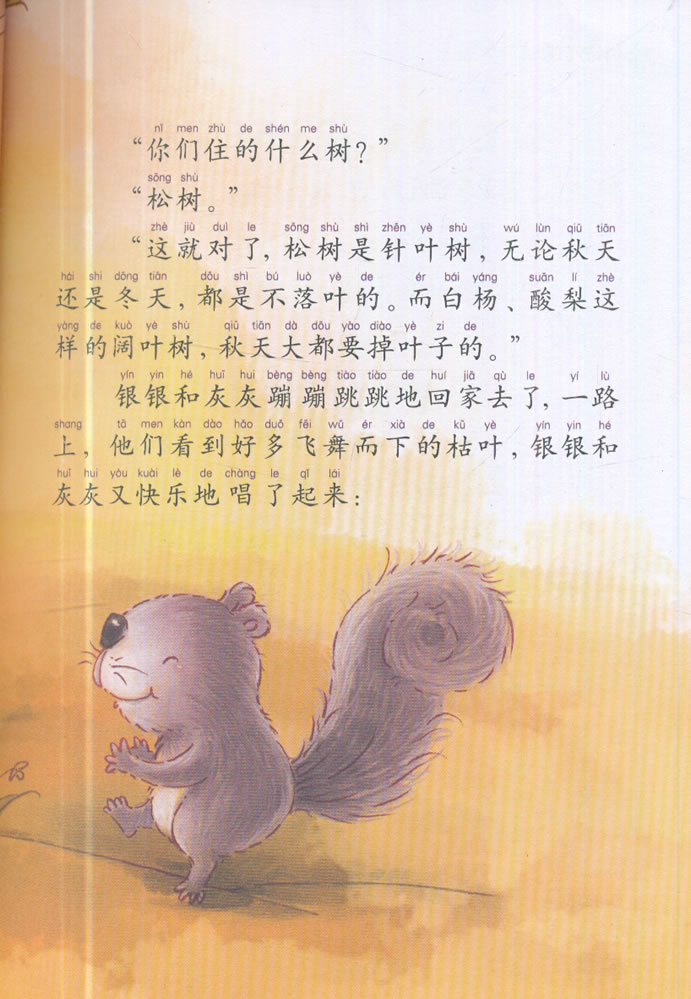 nǐ men zhù de shén me shù
“你们住的什么树？”
sōng shù
“松树。”
zhè jiù duì le sōng shù shì zhēn yè shù wú lùn qiū tiān
“这就对了，松树是针叶树，无论秋天
hái shi dōng tiān dōu shì bú luò yè de ér bái yáng suān lí zhè
还是冬天，都是不落叶的。而白杨、酸梨这
yàng de kuò yè shù qiū tiān dà dōu yào diào yè zi de
样的阔叶树，秋天大都要掉叶子的。”
yín yin hé huī hui bèng bèng tiào tiào de huí jiā qù le yí lù
银银和灰灰蹦蹦跳跳地回家去了，一路
shang tā men kàn dào hǎo duō fēi wǔ ér xià de kū yè yín yin hé
上，他们看到好多飞舞而下的枯叶，银银和
huī hui yòu kuài lè de chàng le qǐ lái
灰灰又快乐地唱了起来：